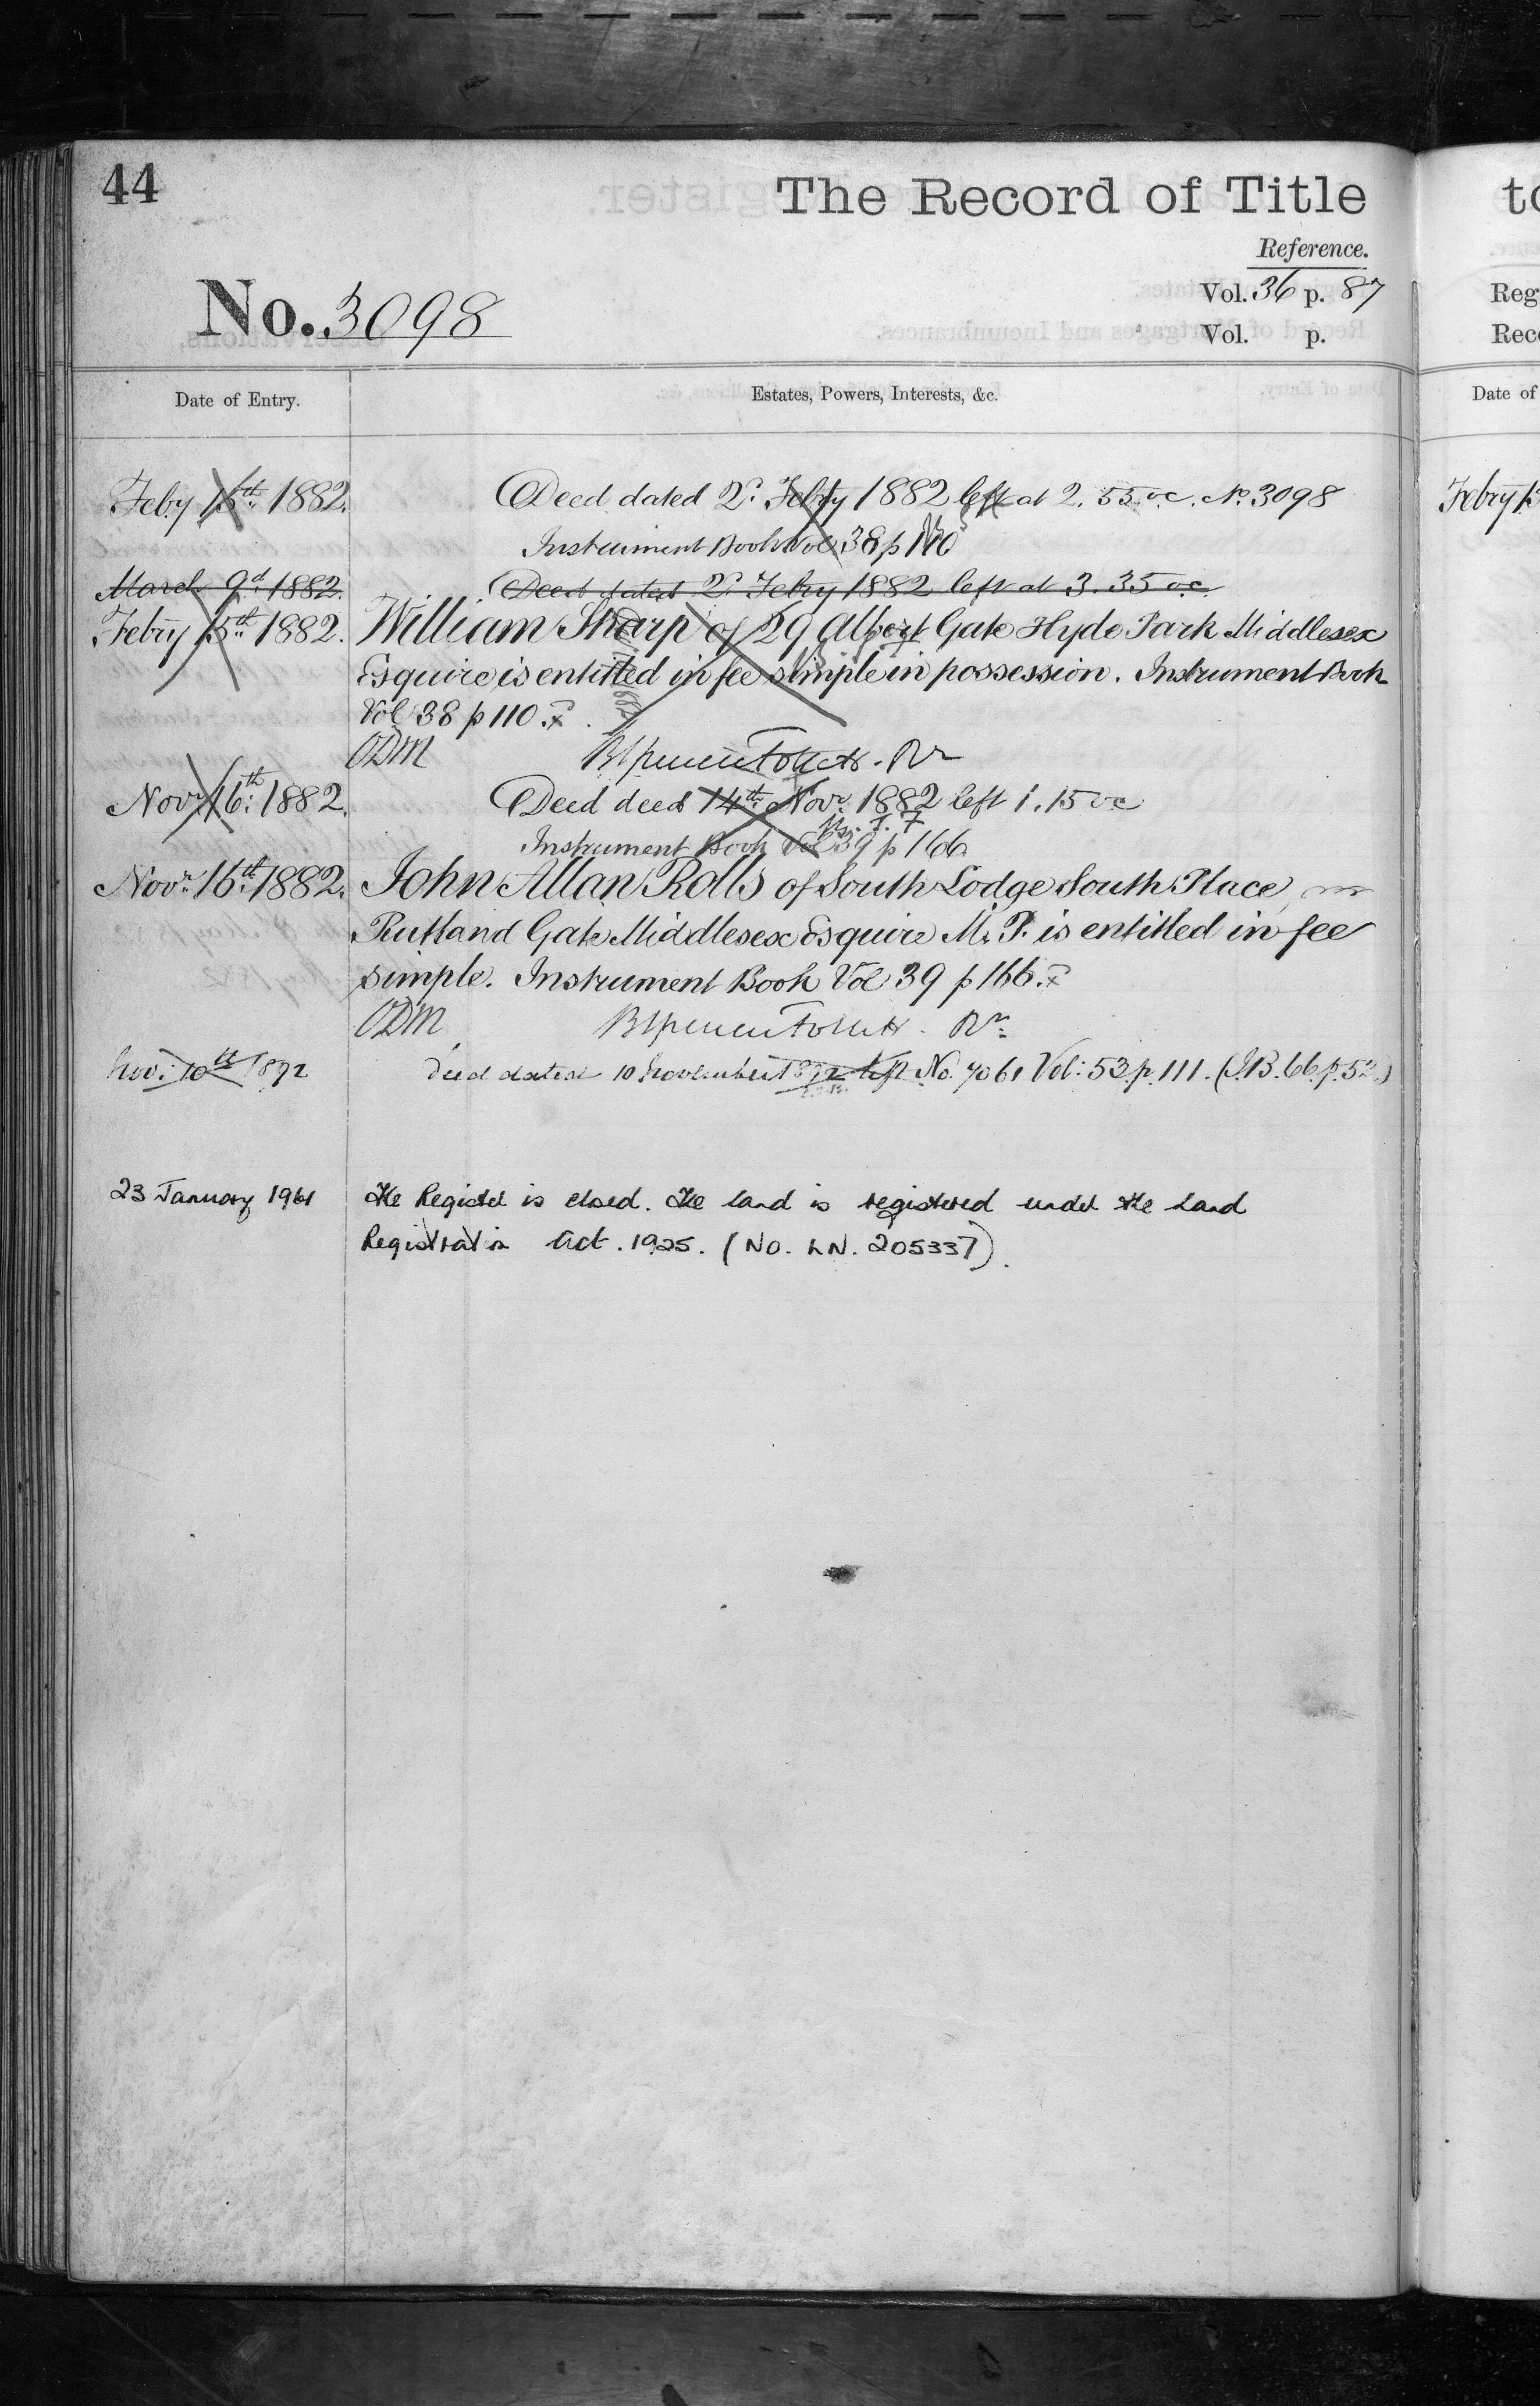 44
The Record of Title
Reference.
No. 3098
Vol. 36 p. 87
Vol. p.
Date of Entry.
Estates, Powers, Interests, &c.
Feby 15th 1882. Deed dated 2d Febry 1882 left at 2.55 oc. No 3098
Instrument Book Vol 38 p 110
March 9d 1882. Deed dated 2d Febry 1882 left at 3.35 oc
Febry 15th 1882. William Sharp of 29 Albert Gate Hyde Park Middlesex
Esquire is entitled in fee simple in possession. Instrument Book
Vol 38 p 110.
ODM
Novr 16th 1882. Deed deed 14th Novr 1882 left 1.15 oc
Instrument Book Vol 39 p 166
Novr 16th 1882. John Allan Rolls of South Lodge South Place
Rutland Gate Middlesex Esquire M.P. is entitled in fee
simple. Instrument Book Vol 39 p 166.
ODM
Nov: 10th 1892 Deed dated 10 November 1892 left No. 7061 Vol: 53 p. 111. (I.B. 66. p. 52.)
23 January 1961 The Register is closed. The land is registered under the Land
Registration Act. 1925. (No. LN. 205337).
to
Reg
Reco
Date of
Febry 15